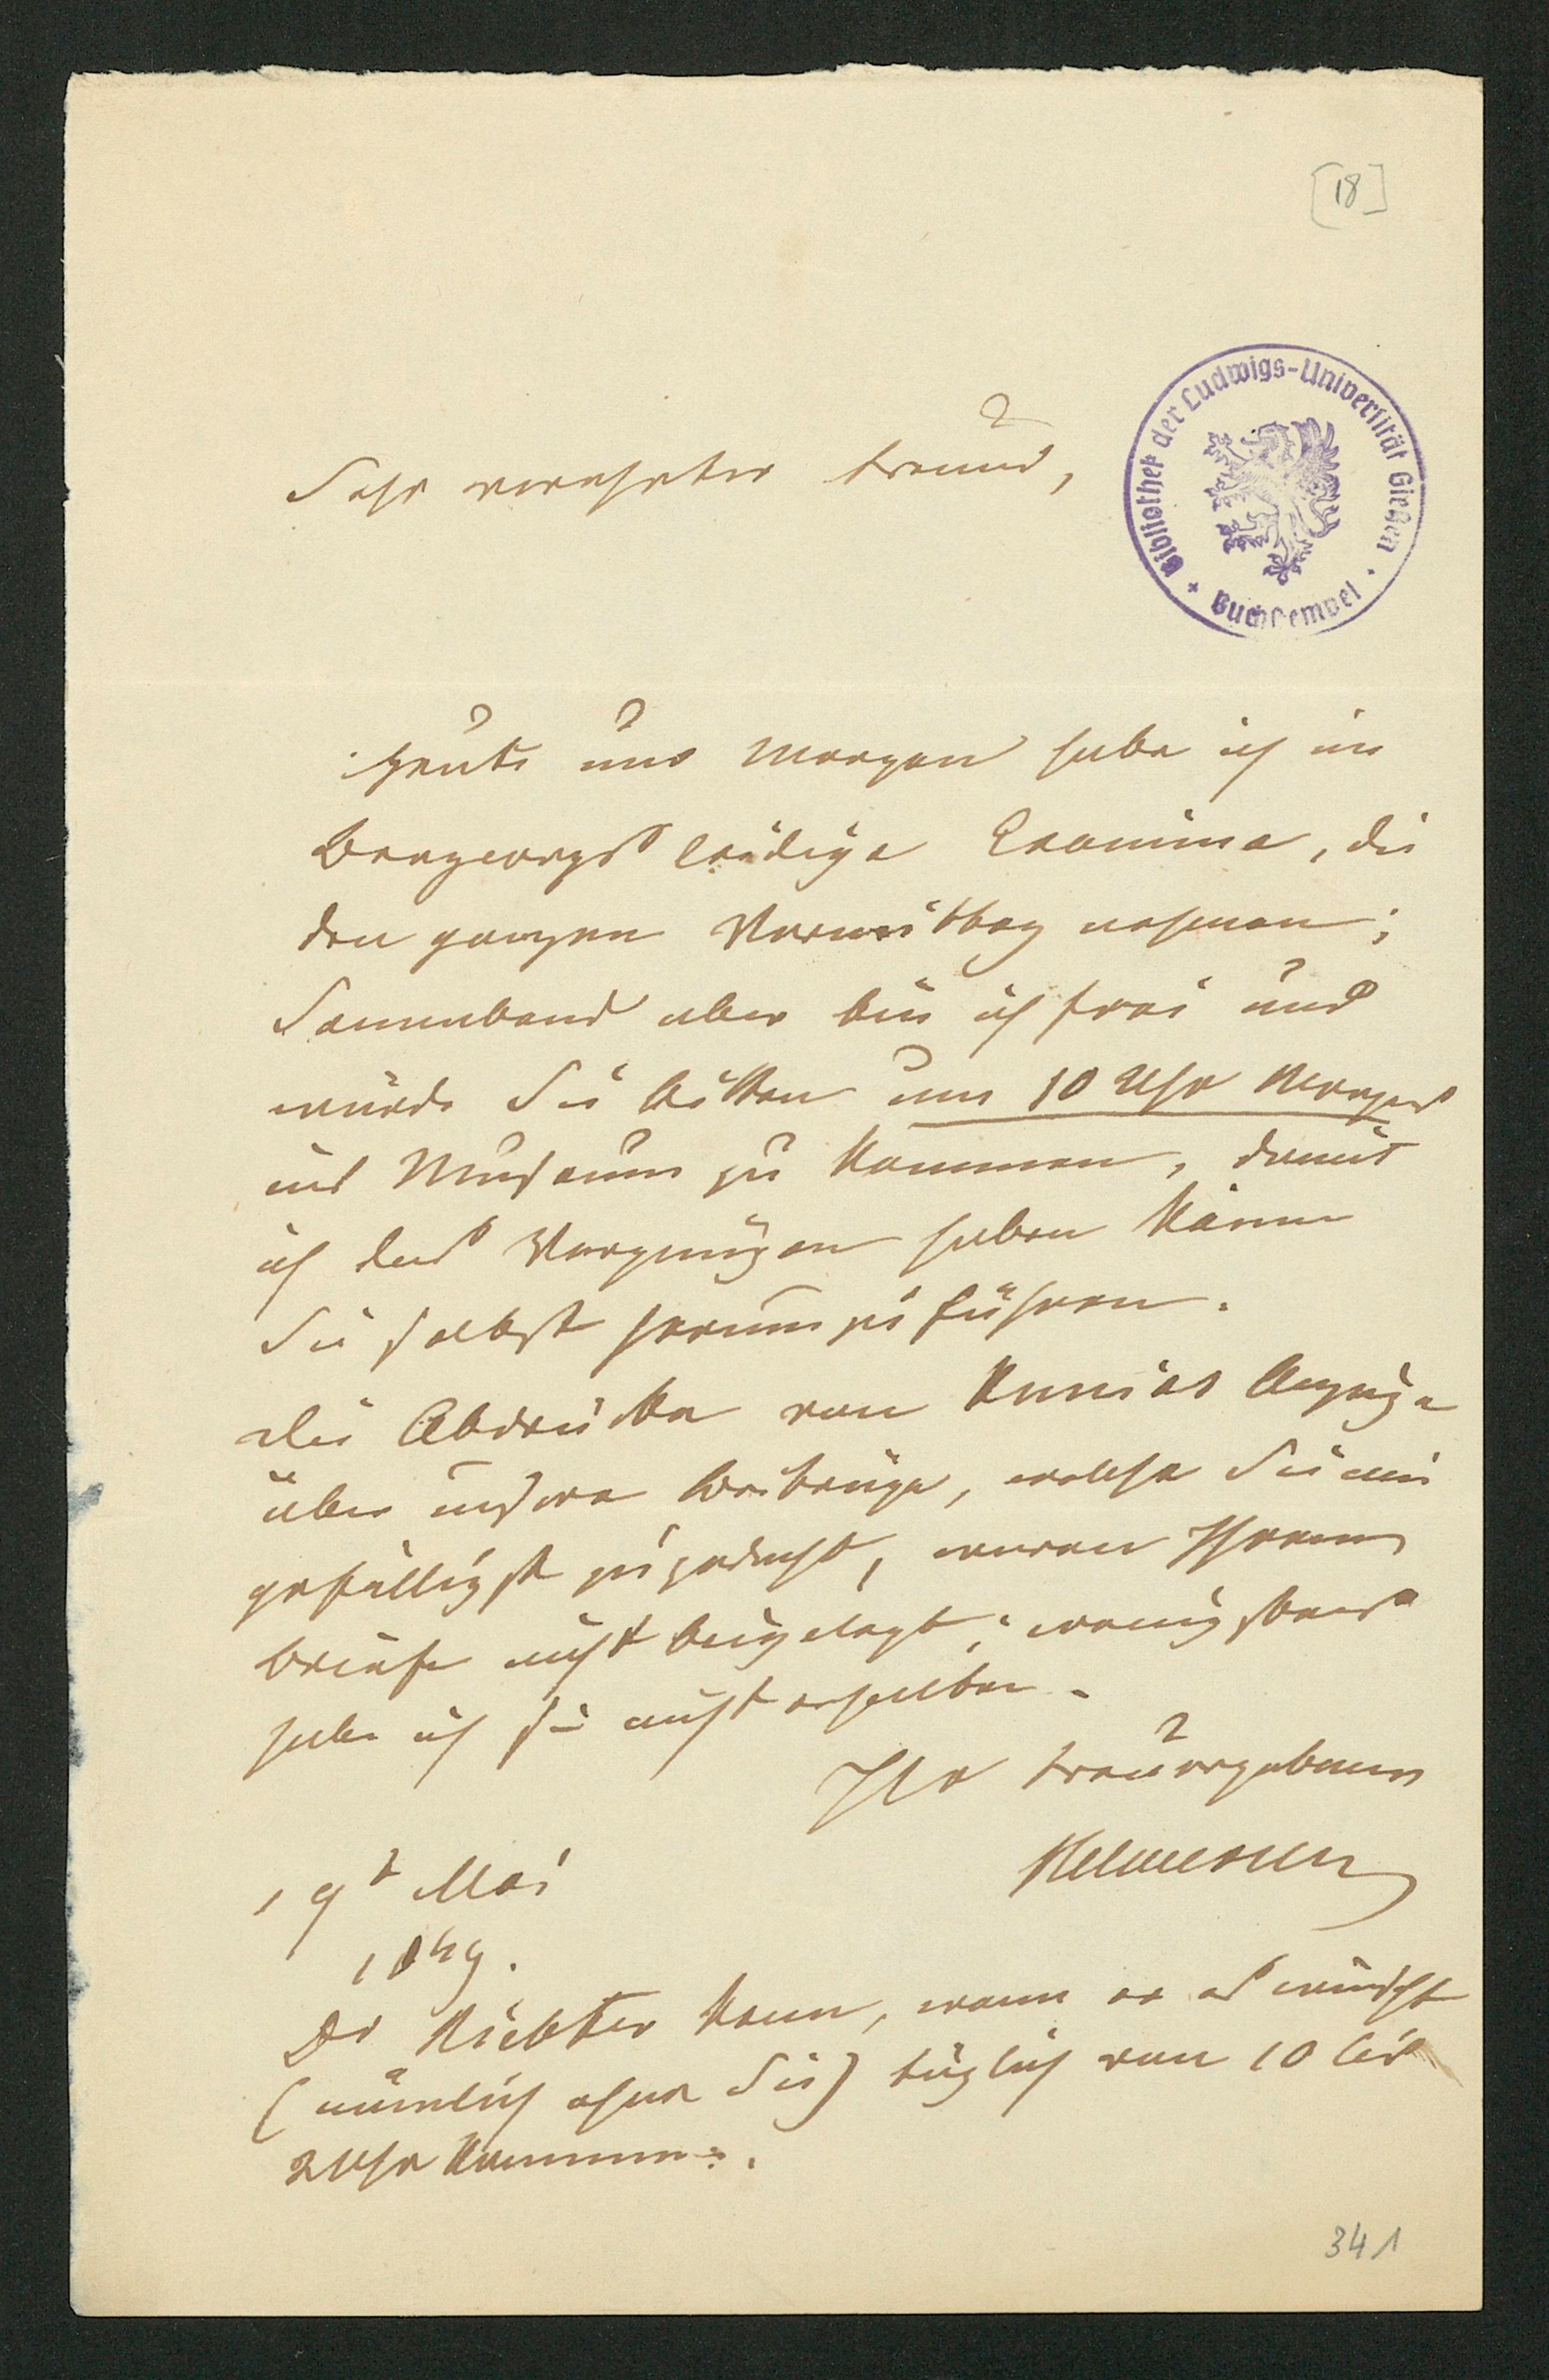 [18]
Bibliothek der Ludwigs-Universität Gießen
Buchstempel
Sehr verehrter Freund,
Heute und Morgen habe ich im
Bergcorps leidige Examina, die
den ganzen Vormittag nehmen;
Sonnabend aber bin ich frei und
würde Sie bitten um 10 Uhr Morgens
ins Museum zu kommen, damit
ich das Vergnügen haben könne
Sie selbst herumzuführen.
Die Abdrücke von Anzeige
über unsere Beiträge, welche Sie mir
gefälligst zugedacht, waren Ihrem
Briefe nicht beigelegt; wenigstens
habe ich sie nicht erhalten.
Ihr treuergebener
Helmersen
19t Mai
1849.
Dr Richter kann, wenn er es wünscht
(nämlich ohne Sie) täglich von 10 bis
2 Uhr kommen.
341